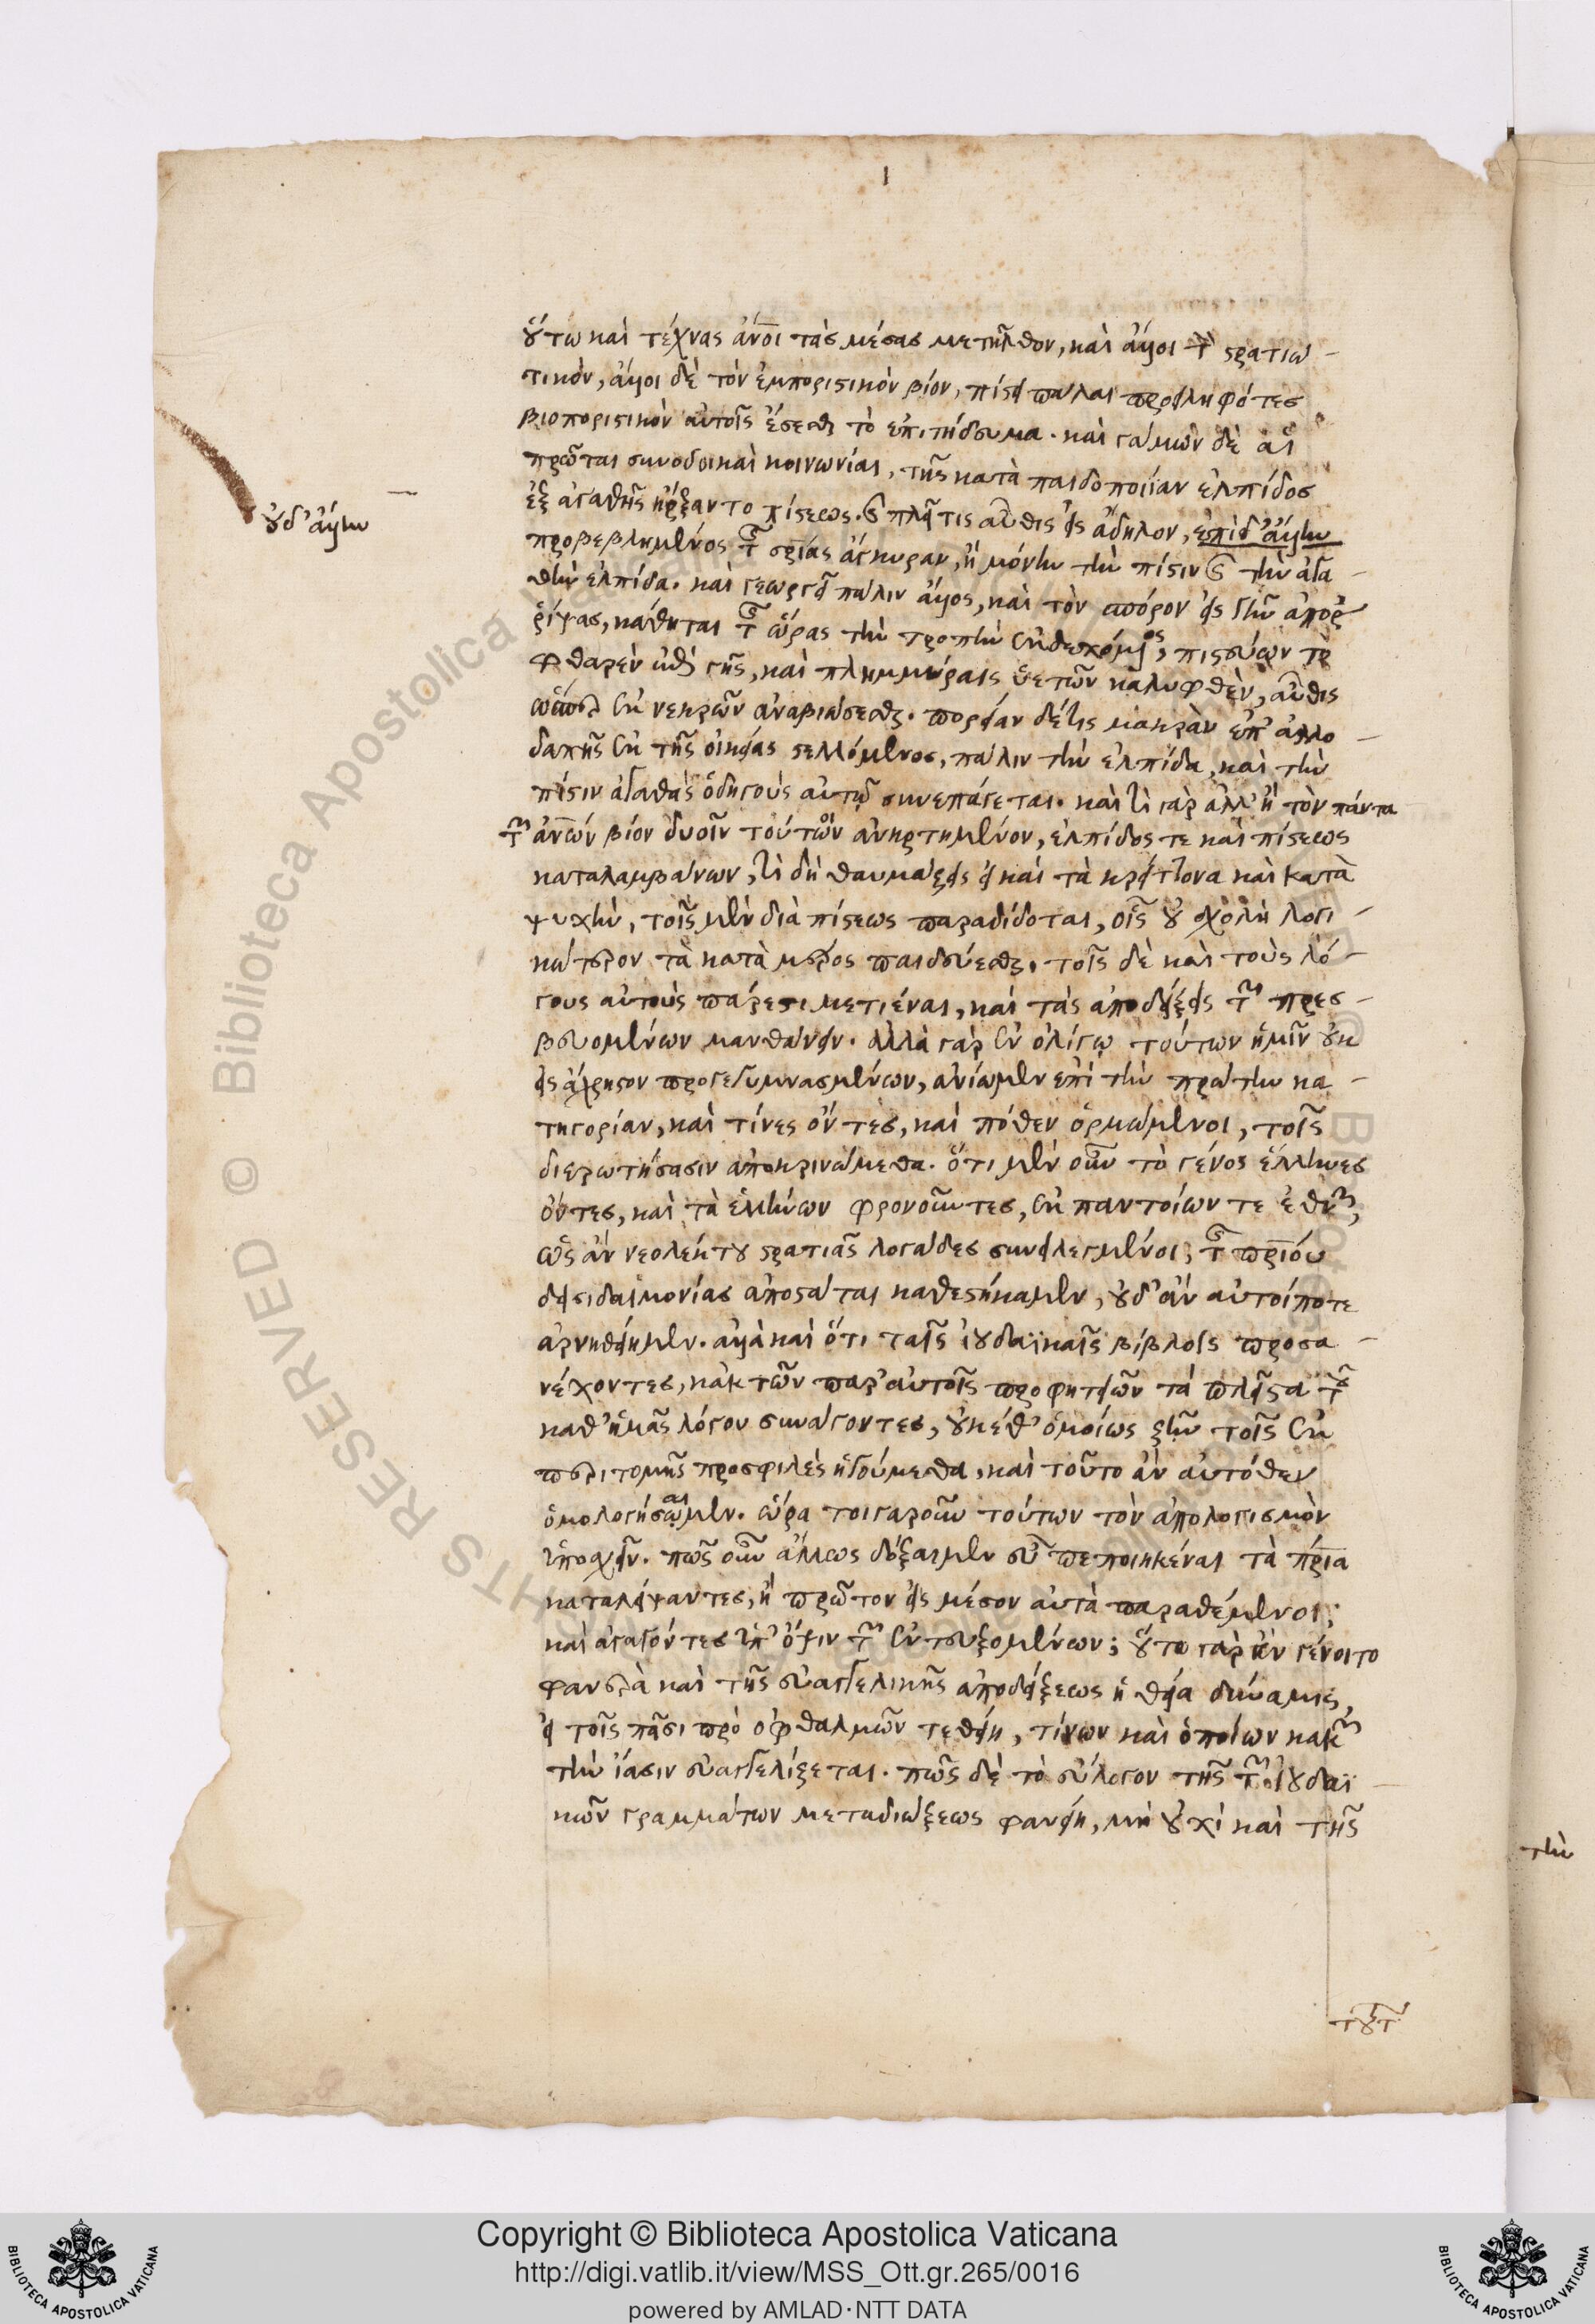 1
οὕτω καὶ τέχνας ἄνοι τὰς μέσας μετῆλθον, καὶ ἄλλοι τὸν στρατιω-
τικὸν, ἄλλοι δὲ τὸν ἐμποριστικὸν βίον, πίστει πάλαι προειληφότες
βιοποριστικὸν αὐτοῖς ἔσεσθαι τὸ ἐπιτήδευμα. καὶ γάμων δὲ αἱ
πρῶται σύνοδοι καὶ κοινωνίαι, τῆς κατὰ παιδοποιΐαν ἐλπίδος
ἐξ ἀγαθῆς ἤρξαντο πίστεως. καὶ πλεῖ τις αὖθις εἰς ἄδηλον, ἐπιδ' ἄλλην
οὐδ' ἄλλην
προβεβλημένος τῆς σρίας ἄγκυραν, ἢ μόνην τὴν πίστιν καὶ τὴν ἀγα-
θὴν ἐλπίδα. καὶ γεωργεῖ πάλιν ἄλλος, καὶ τὸν σπόρον εἰς γῆν ἀπορ
ρίψας, κάθηται τῆς ὥρας τὴν τροπὴν ἐκδεχόμενος, πιστεύων τὸ
φθαρὲν ἐπὶ γῆς, καὶ πλημμύραις ὑετῶν καλυφθὲν, αὖθις
ὥσπερ ἐκ νεκρῶν ἀναβιώσεσθαι. πορείαν δέ τις μακρὰν ἐπ' ἀλλο-
δαπῆς ἐκ τῆς οἰκείας στελλόμενος, πάλιν τὴν ἐλπίδα, καὶ τὴν
πίστιν ἀγαθὰς ὁδηγοὺς αὐτῷ συνεπάγεται. καὶ τί γὰρ ἀλλ' ἢ τὸν πάντα
τῶν ἀνων βίον δυοῖν τούτων ἀνηρτημένον, ἐλπίδος τε καὶ πίστεως
καταλαμβάνων, τί δὴ θαυμάζεις εἰ καὶ τὰ κρείττονα καὶ κατὰ
ψυχὴν, τοῖς μὲν διὰ πίστεως παραδίδοται, οἷς οὐ σχολὴ λογι-
κώτερον τὰ κατὰ μέρος παιδεύεσθαι, τοῖς δὲ καὶ τοὺς λό-
γους αὐτοὺς πάρεστι μετιέναι, καὶ τὰς ἀποδείξεις τῶν πρεσ-
βευομένων μανθάνειν. ἀλλὰ γὰρ ἐν ὀλίγῳ τούτων ἡμῖν οὐκ
εἰς ἄχρηστον προγεγυμνασμένων, ἀνίωμεν ἐπὶ τὴν πρώτην κα-
τηγορίαν, καὶ τίνες ὄντες, καὶ πόθεν ὁρμώμενοι, τοῖς
διερωτήσασιν ἀποκρινώμεθα. ὅτι μὲν οὖν τὸ γένος ἕλληνες
ὄντες, καὶ τὰ ἑλλήνων φρονοῦντες, ἐκ παντοίων τε ἐθνῶν,
ὡς ἂν νεολέκτου στρατιᾶς λογάδες συνειλεγμένοι, τῆς πριόυ
δεισιδαιμονίας ἀποστάται καθεστήκαμεν, οὐδ' ἂν αὐτοίποτε
ἀρνηθείημεν. ἀλλὰ καὶ ὅτι ταῖς ἰουδαϊκαῖς βίβλοις προσα-
νέχοντες, κἀκ τῶν παρ' αὐτοῖς προφητειῶν τὰ πλεῖστα τοῦ
καθ' ἡμᾶς λόγου συνάγοντες, οὐκέθ' ὁμοίως ζῆν τοῖς ἐκ
περιτομῆς προσφιλὲς ἡγούμεθα, καὶ τοῦτο ἂν αὐτόθεν
ὁμολογήσαιμεν. ὥρα τοιγαροῦν τούτων τὸν ἀπολογισμὸν
ὑποσχεῖν. πῶς οὖν ἄλλως δόξαιμεν εὖ πεποιηκέναι τὰ πρια
καταλείψαντες, ἢ πρῶτον εἰς μέσον αὐτὰ παραθέμενοι;
καὶ ἀγαγόντες ὑπ' ὄψιν τῶν ἐντευξομένων; οὕτω γὰρ ἂν γένοιτο
φανερὰ καὶ τῆς εὐαγγελικῆς ἀποδείξεως ἡ θεία δύναμις,
εἰ τοῖς πᾶσι πρὸ ὀφθαλμῶν τεθείη, τίνων καὶ ὁποίων κακῶν
τὴν ἴασιν εὐαγγελίζεται. πῶς δὲ τὸ εὔλογον τῆς τῶν ἰουδαϊ-
κῶν γραμμάτων μεταδιώξεως φανείη, μὴ οὐχὶ καὶ τῆς
τούτων
τὴν
Copyright © Biblioteca Apostolica Vaticana
http://digi.vatlib.it/view/MSS_Ott.gr.265/0016
powered by AMLAD·NTT DATA